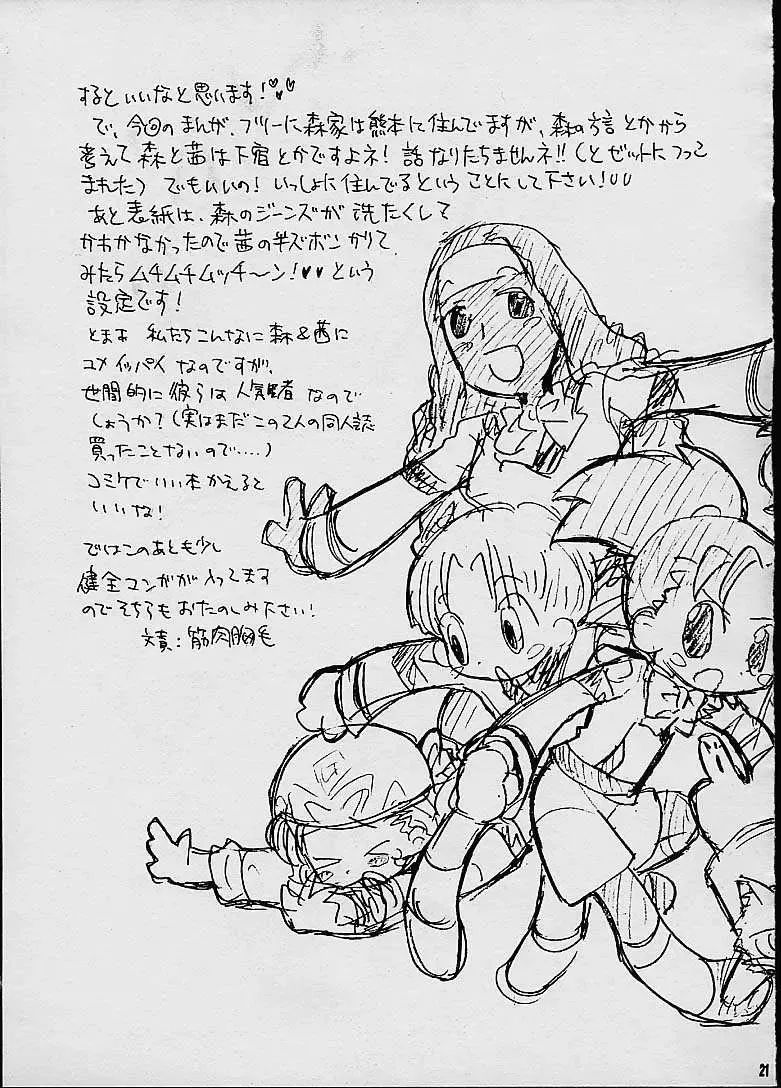 するといいなと思います!♡♡
で、今回のまんが、フリーに森家は熊本に住んでますが、森の方言とかから
考えて森と茜は下宿とかですよネ!話なりたちませんネ!!(とゼットにつっこ
まれた)でもいいの!いっしょに住んでるということにして下さい!
あと表紙は、森のジーンズが洗たくして
かわかなかったので茜の半ズボンかりて
みたらムチムチムッチ〜ン!♥♥という
設定です!
とまぁ 私たちこんなに森&茜に
ユメイッパイなのですが、
世間的に彼らは人気者なので
しょうか?(実はまだこの2人の同人誌
買ったことないので‥‥)
コミケでいい本かえると
いいな!
ではこのあとも少し
健全マンガが入ってます
のでそちらもおたのしみ下さい!
文責:筋肉胸毛
は
21